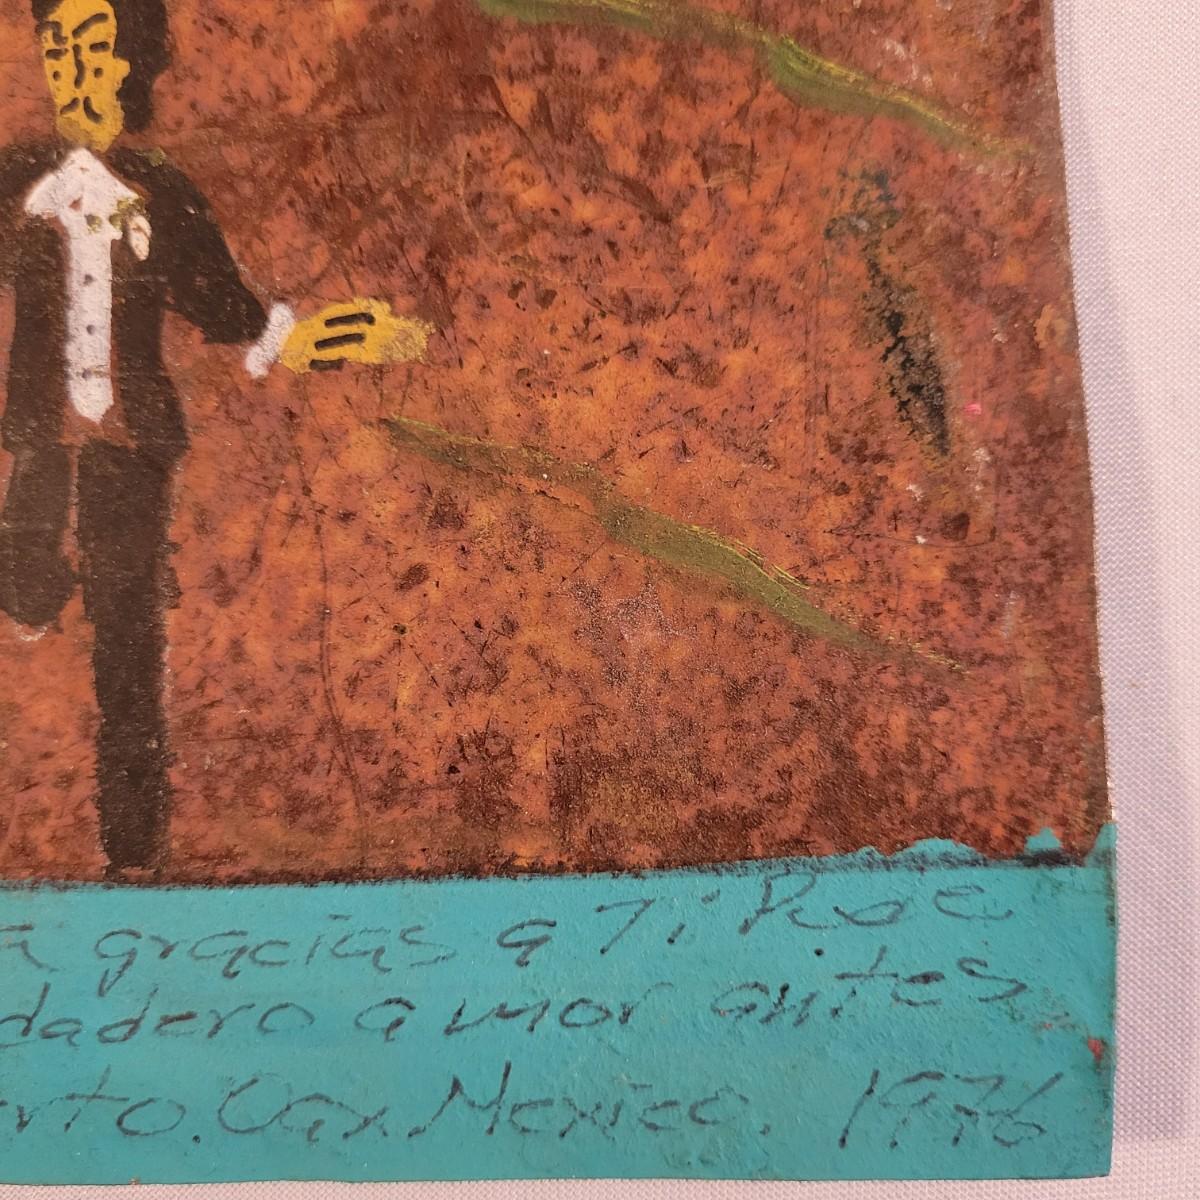 a gracias a Ti Pude
dadero amor antes
rto. Oax Mexico. 1976